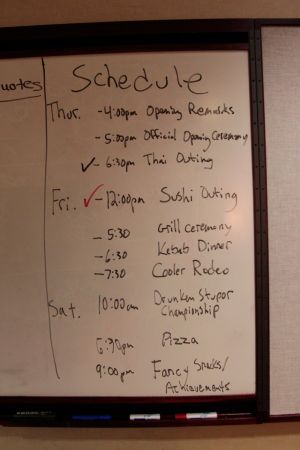 uotes
Schedule
Thur. - 4:00pm Opening Remarks
- 5:00pm Official Opening Ceremony
✓ - 6:30pm Thai Outing
Fri. ✓ - 12:00pm Sushi Outing
- 5:30 Grill Ceremony
- 6:30 Kebab Dinner
- 7:30 Cooler Rodeo
Sat. 10:00am Drunken Stupor
Championship
6:30pm Pizza
9:00pm Fancy Snacks/
Achievements